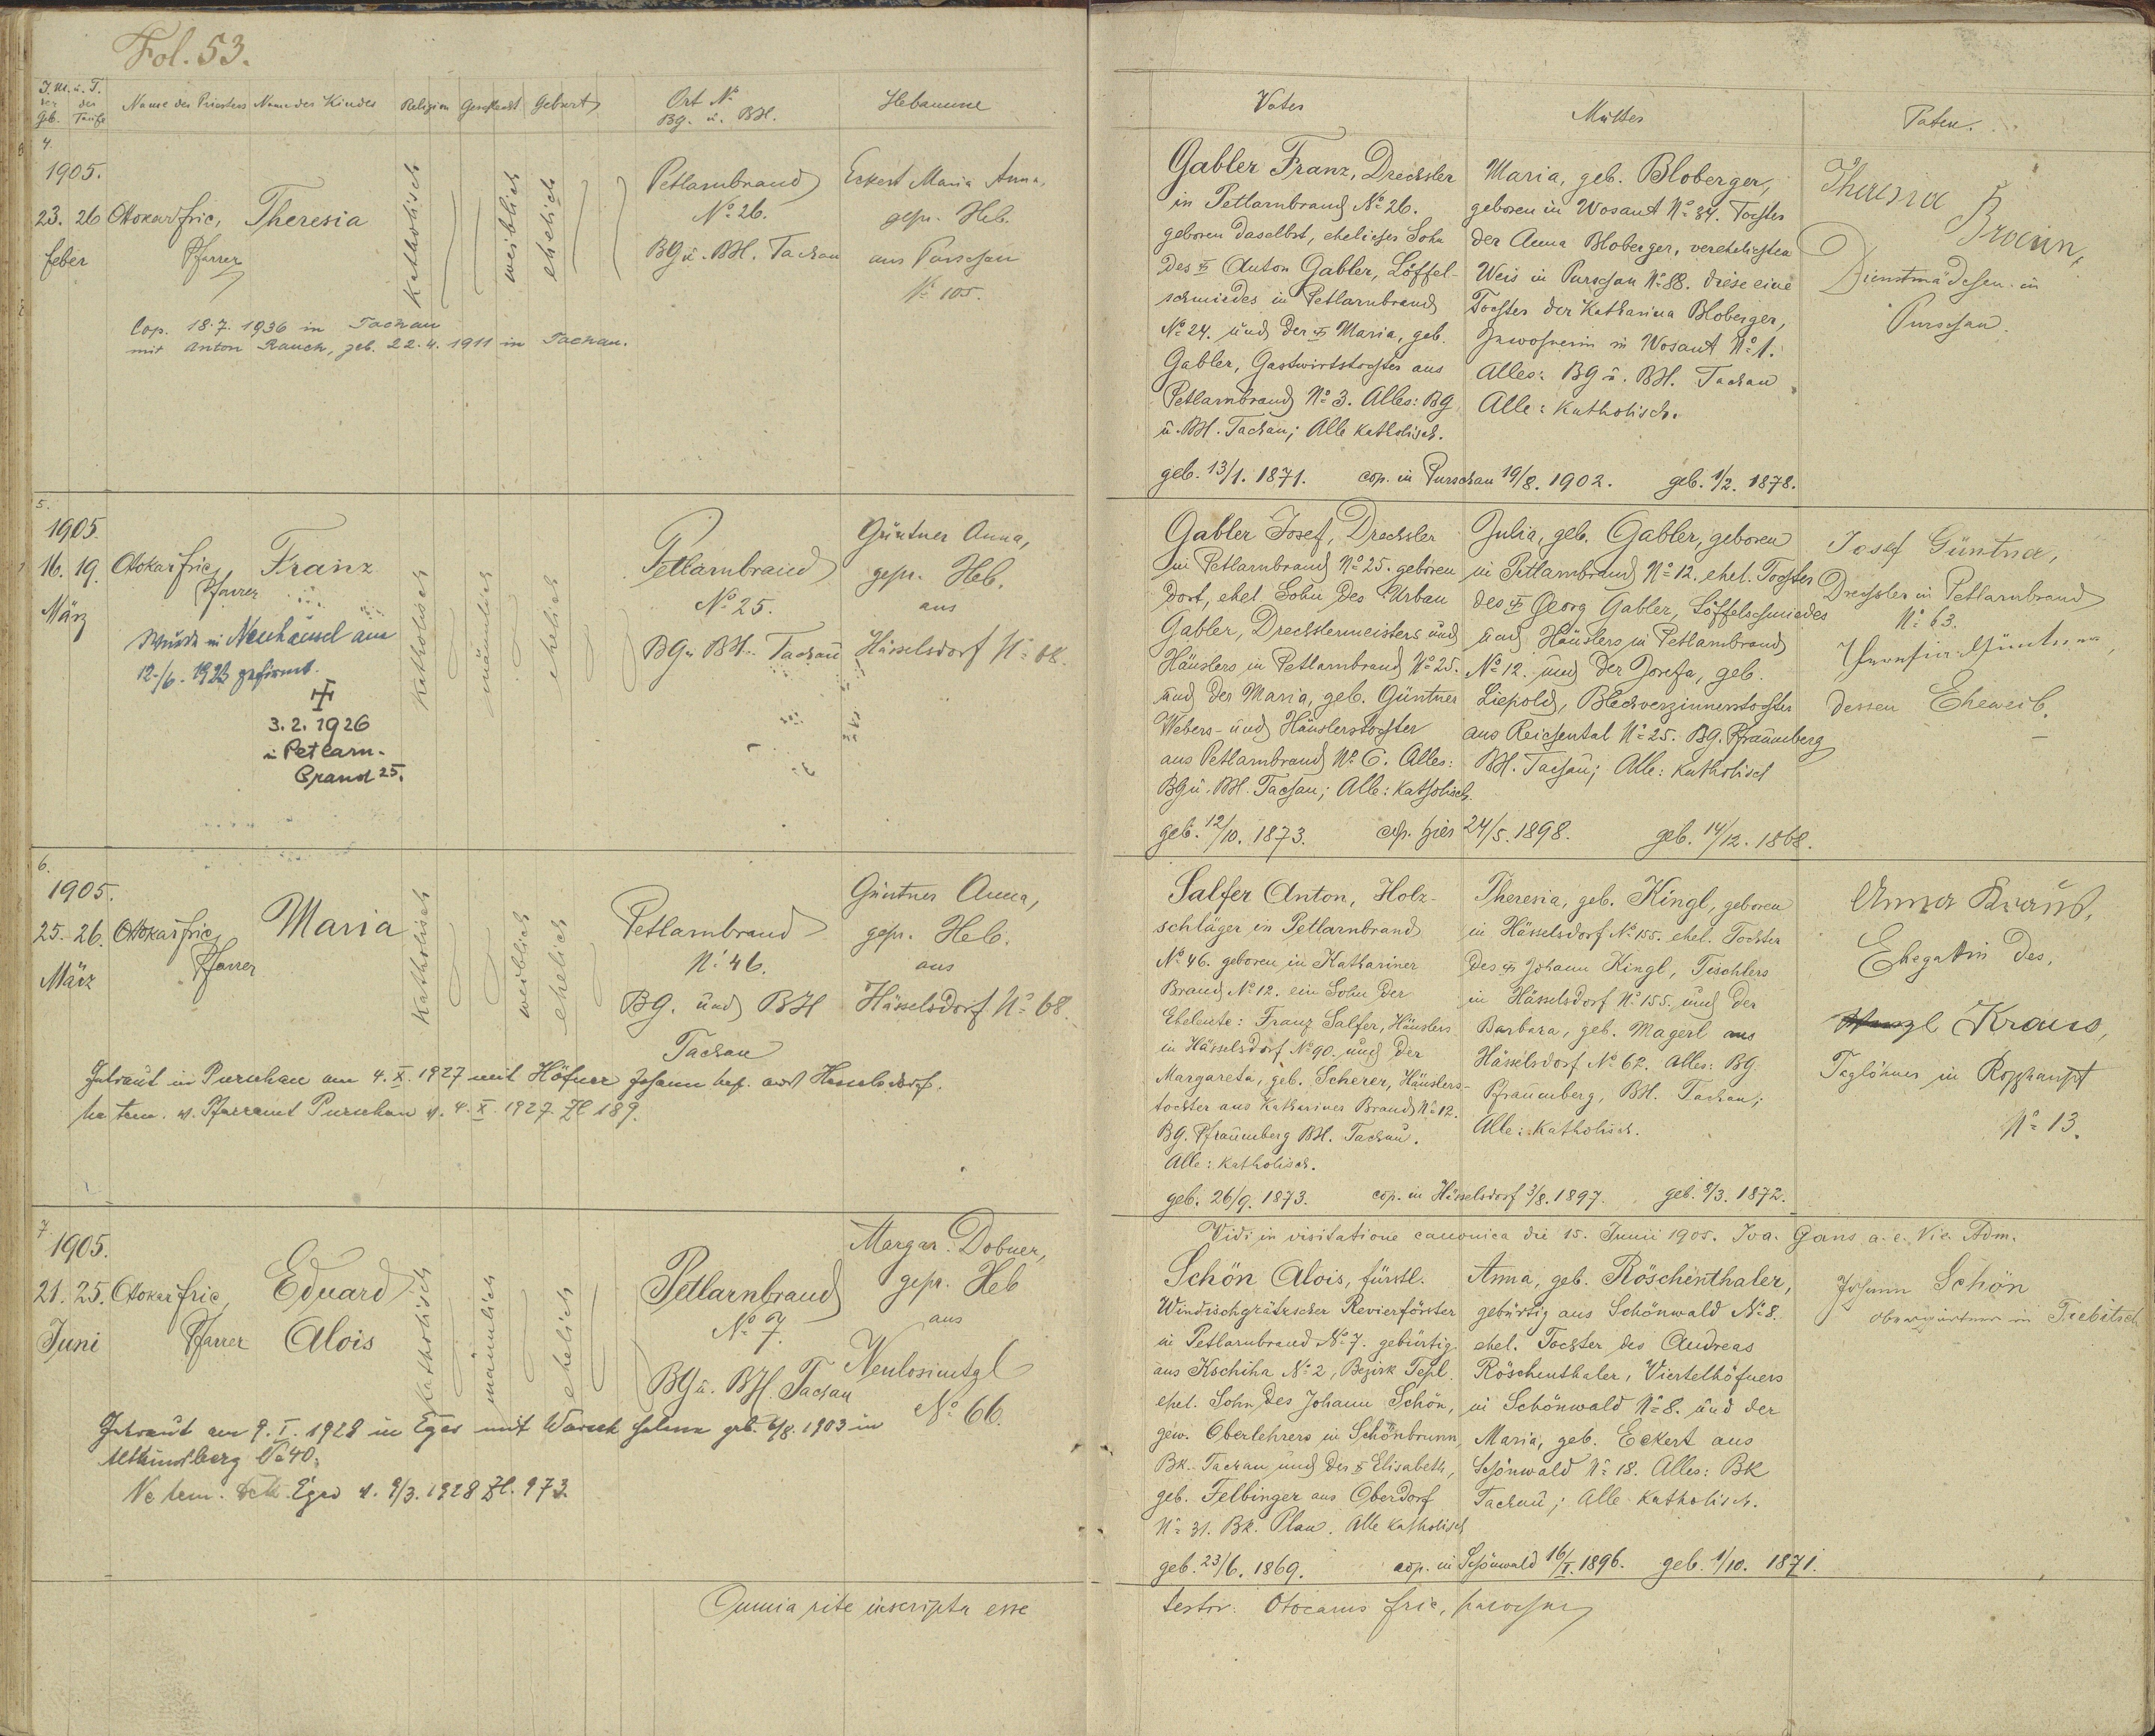 Fol. 53.
J. M. u. T.
der Geb. der Taufe
Name des Priesters Name des Kindes Religion Geschlecht Geburt Ort No BG. u. BH. Hebamme
4.
1905.
23. 26 Ottokar Fric, Theresia
feber Pfarrer
katholisch
weiblich
ehelich
Petlarnbrand
No 26.
BG u. BH. Tachau
Eckert Maria Anna,
gepr. Heb.
aus Purschau
No 105.
Cop. 18.7.1936 in Tachau
mit Anton Rauch, geb. 22.4.1911 in Tachau.
5.
1905.
16. 19. Otokar Fric, Franz
März Pfarrer
katholisch
männlich
ehelich
Petlarnbrand
No 25.
BG u BH. Tachau
Güntner Anna,
gepr. Heb.
aus
Hässelsdorf No 68.
Wurde in Neuhäusel am
12./6. 1923 gefirmt.
3.2.1926
in Petlarn-
brand 25.
6.
1905.
25. 26. Ottokar Fric, Maria
März Pfarrer
katholisch
weiblich
ehelich
Petlarnbrand
No 46.
BG. und BH
Tachau
Güntner Anna,
gepr. Heb.
aus
Hässelsdorf No 68.
Getraut in Purschau am 4. X. 1927 mit Höfner Johann aus Hesselsdorf.
Ne tem. v. Pfarramt Purschau v. 4. X. 1927 Zl 189.
7
1905.
21. 25. Otokar Fric, Eduard
Juni Pfarrer Alois
katholisch
männlich
ehelich
Petlarnbrand
No 7.
BG u. BH. Tachau
Margar. Dobner,
gepr. Heb
aus
Neulosimtal
No 66.
Getraut am 9. I. 1928 in Eger mit geb. 6/8. 1903 in
Altkinsberg No 40.
Ne tem. Eger v. 9/3. 1928 Zl. 973.
Omnia rite inscripta esse
Vater Mutter Paten.
Gabler Franz, Drechsler
in Petlarnbrand No 26.
geboren daselbst, ehelicher Sohn
des Anton Gabler, Löffel-
schmiedes in Petlarnbrand
No 24. und der Maria, geb.
Gabler, Gastwirtstochter aus
Petlarnbrand No 3. Alles: BG
u. BH. Tachau; Alle katholisch.
Maria, geb. Bloberger,
geboren in Wosant No 34. Tochter
der Anna Bloberger, verehelichten
Weis in Purschau No 88. diese eine
Tochter der Katharina Bloberger,
Inwohnerin in Wosant No 1.
Alles: BG u. BH. Tachau
Alle: katholisch.
Theresia
Dienstmädchen in
Purschau.
geb. 13/1. 1871. cop. in Purschau 19/8. 1902. geb. 1/2. 1878.
Gabler Josef, Drechsler
in Petlarnbrand No 25. geboren
dort, ehel. Sohn des Urban
Gabler, Drechslermeisters und
Häuslers in Petlarnbrand No 25.
und der Maria, geb. Güntner
Webers- und Häuslerstochter
aus Petlarnbrand No 6. Alles:
BG u. BH. Tachau; Alle: katholisch.
Julia, geb. Gabler, geboren
in Petlarnbrand No 12. ehel. Tochter
des Georg Gabler, Löffelschmiedes
und Häuslers in Petlarnbrand
No 12. und der Josefa, geb.
Liepold, Blechverzinnerstochter
aus Reichental No 25. BG. Pfraumberg
BH. Tachau; Alle: katholisch
Josef Güntner,
Drechsler in Petlarnbrand
No 63.
dessen Eheweib.
geb. 12/10. 1873. cop. hier 24/5. 1898. geb. 14/12. 1868.
Salfer Anton, Holz-
schläger in Petlarnbrand
No 46. geboren in Kathariner
Brand No 12. ein Sohn der
Eheleute: Franz Salfer, Häuslers
in Hässelsdorf No 90. und der
Margareta, geb. Scherer, Häuslers-
tochter aus Kathariner Brand No 12.
BG. Pfraumberg BH. Tachau.
Alle: katholisch.
Theresia, geb. Kingl, geboren
in Hässelsdorf No 155. ehel. Tochter
des Johann Kingl, Tischlers
in Hässelsdorf No 155. und der
Barbara, geb. Magerl aus
Hässelsdorf No 62. Alles: BG
Pfraumberg, BH. Tachau;
Alle: katholisch.
Anna Kraus,
Ehegattin des,
Wenzl Kraus,
Taglöhner in Roßhaupt
No 13.
geb. 26/9. 1873. cop. in Hässelsdorf 3/8. 1897. geb. 8/3. 1872.
Vidi in visitatione canonica die 15. Junii 1905. Joa. Gans a. e. Vic. Adm.
Schön Alois, fürstl.
Windischgrätzscher Revierförster
in Petlarnbrand No 7. gebürtig
aus Kschiha No 2, Bezirk Tepl.
ehel. Sohn des Johann Schön,
gew. Oberlehrers in Schönbrunn,
BK. Tachau und der Elisabeth,
geb. Felbinger aus Oberdorf
No 31. BK. Plan. Alle katholisch
Anna, geb. Röschenthaler,
gebürtig aus Schönwald No 8.
ehel. Tochter des Andreas
Röschenthaler, Viertelhöfners
in Schönwald No 8. und der
Maria, geb. Eckert aus
Schönwald No 18. Alles: BK
Tachau; Alle katholisch.
Johann Schön
Obergärtner in Trebitsch
geb. 23/6. 1869. cop. in Schönwald 16/I. 1896. geb. 1/10. 1871.
testor: Otocarus Fric, parochus